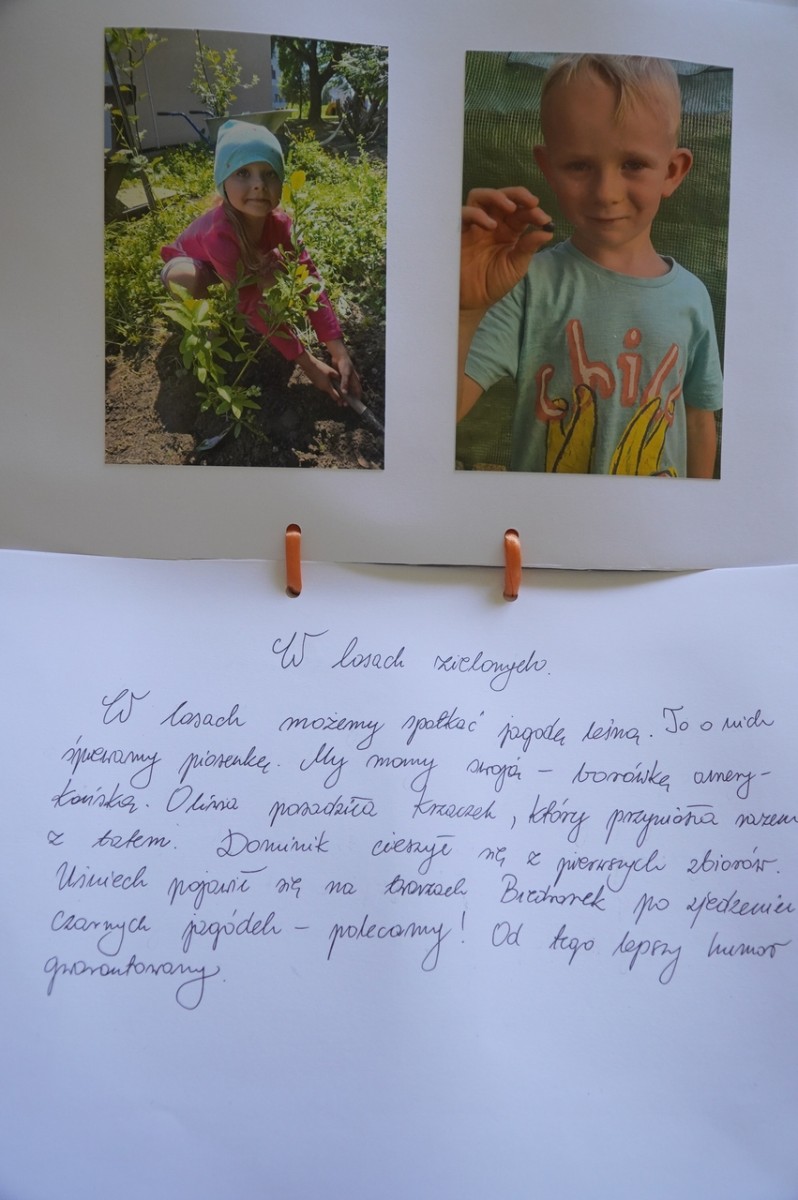 chill
W lasach zielonych.
W lasach możemy spotkać jagodę leśną. To o nich
śpiewamy piosenkę. My mamy swoją - borówkę amery-
kańską. Oliwia posadziła krzaczek, który przyniosła razem
z tatem. Dominik cieszył się z pierwszych zbiorów.
Uśmiech pojawił się na twarzach Biedronek po zjedzeniu
czarnych jagódek - polecamy! Od tego lepszy humor
gwarantowany.